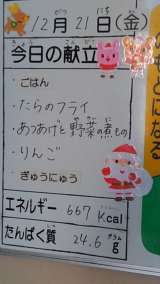 12月21日(金)
今日の献立
・ごはん
・たらのフライ
・あつあげと野菜の煮もの
・りんご
・ぎゅうにゅう
エネルギー 667 Kcal
たんぱく質 24.6 g